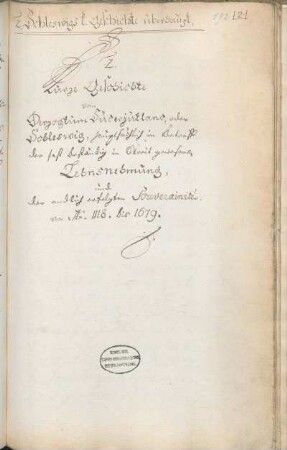 Schleswigs Geschichte
121
I.
Kurze Geschichte
von
Herzogthum Süderjütland, oder
Schleswig, hauptsächlich in Betreff
der fast beständig in Streit gewesenen
Lehnsnehmung,
und
der endlich erfolgten Souverainité.
von 1118. bis 1679.